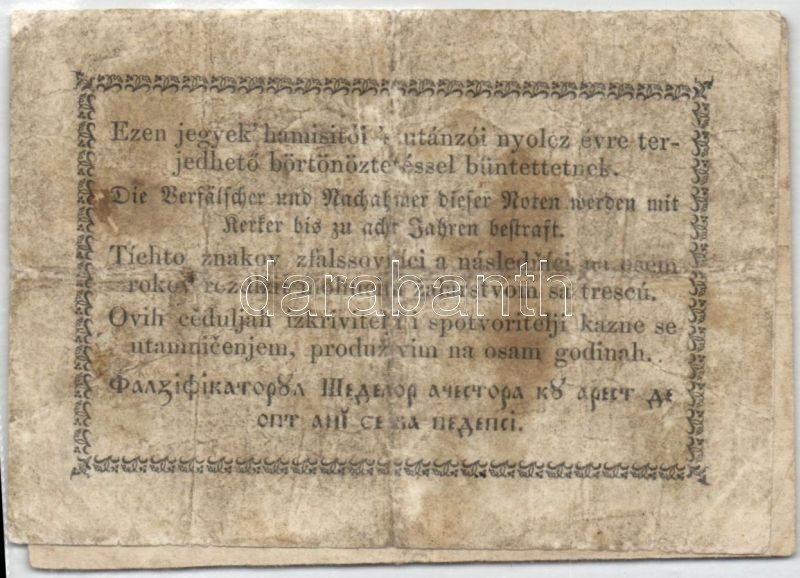 Ezen jegyek hamisitói 's utánzói nyolcz évre ter-
jedhető börtönöztetéssel büntettetnek.
Die Verfälscher und Nachahmer dieser Noten werden mit
Kerker bis zu acht Jahren bestraft.
Tíchto znakov zfalssovníci a následníci na osem
rokov žalárstvom sa trescú.
darabanth
Ovih ceduljah izkrivitelji i spotvoritelji kazne se
utamničenjem, produživim na osam godinah.
Фалꙃіфікаторꙋл Шеделор ачестора кꙋ арест де
опт анї се ва педепсі.